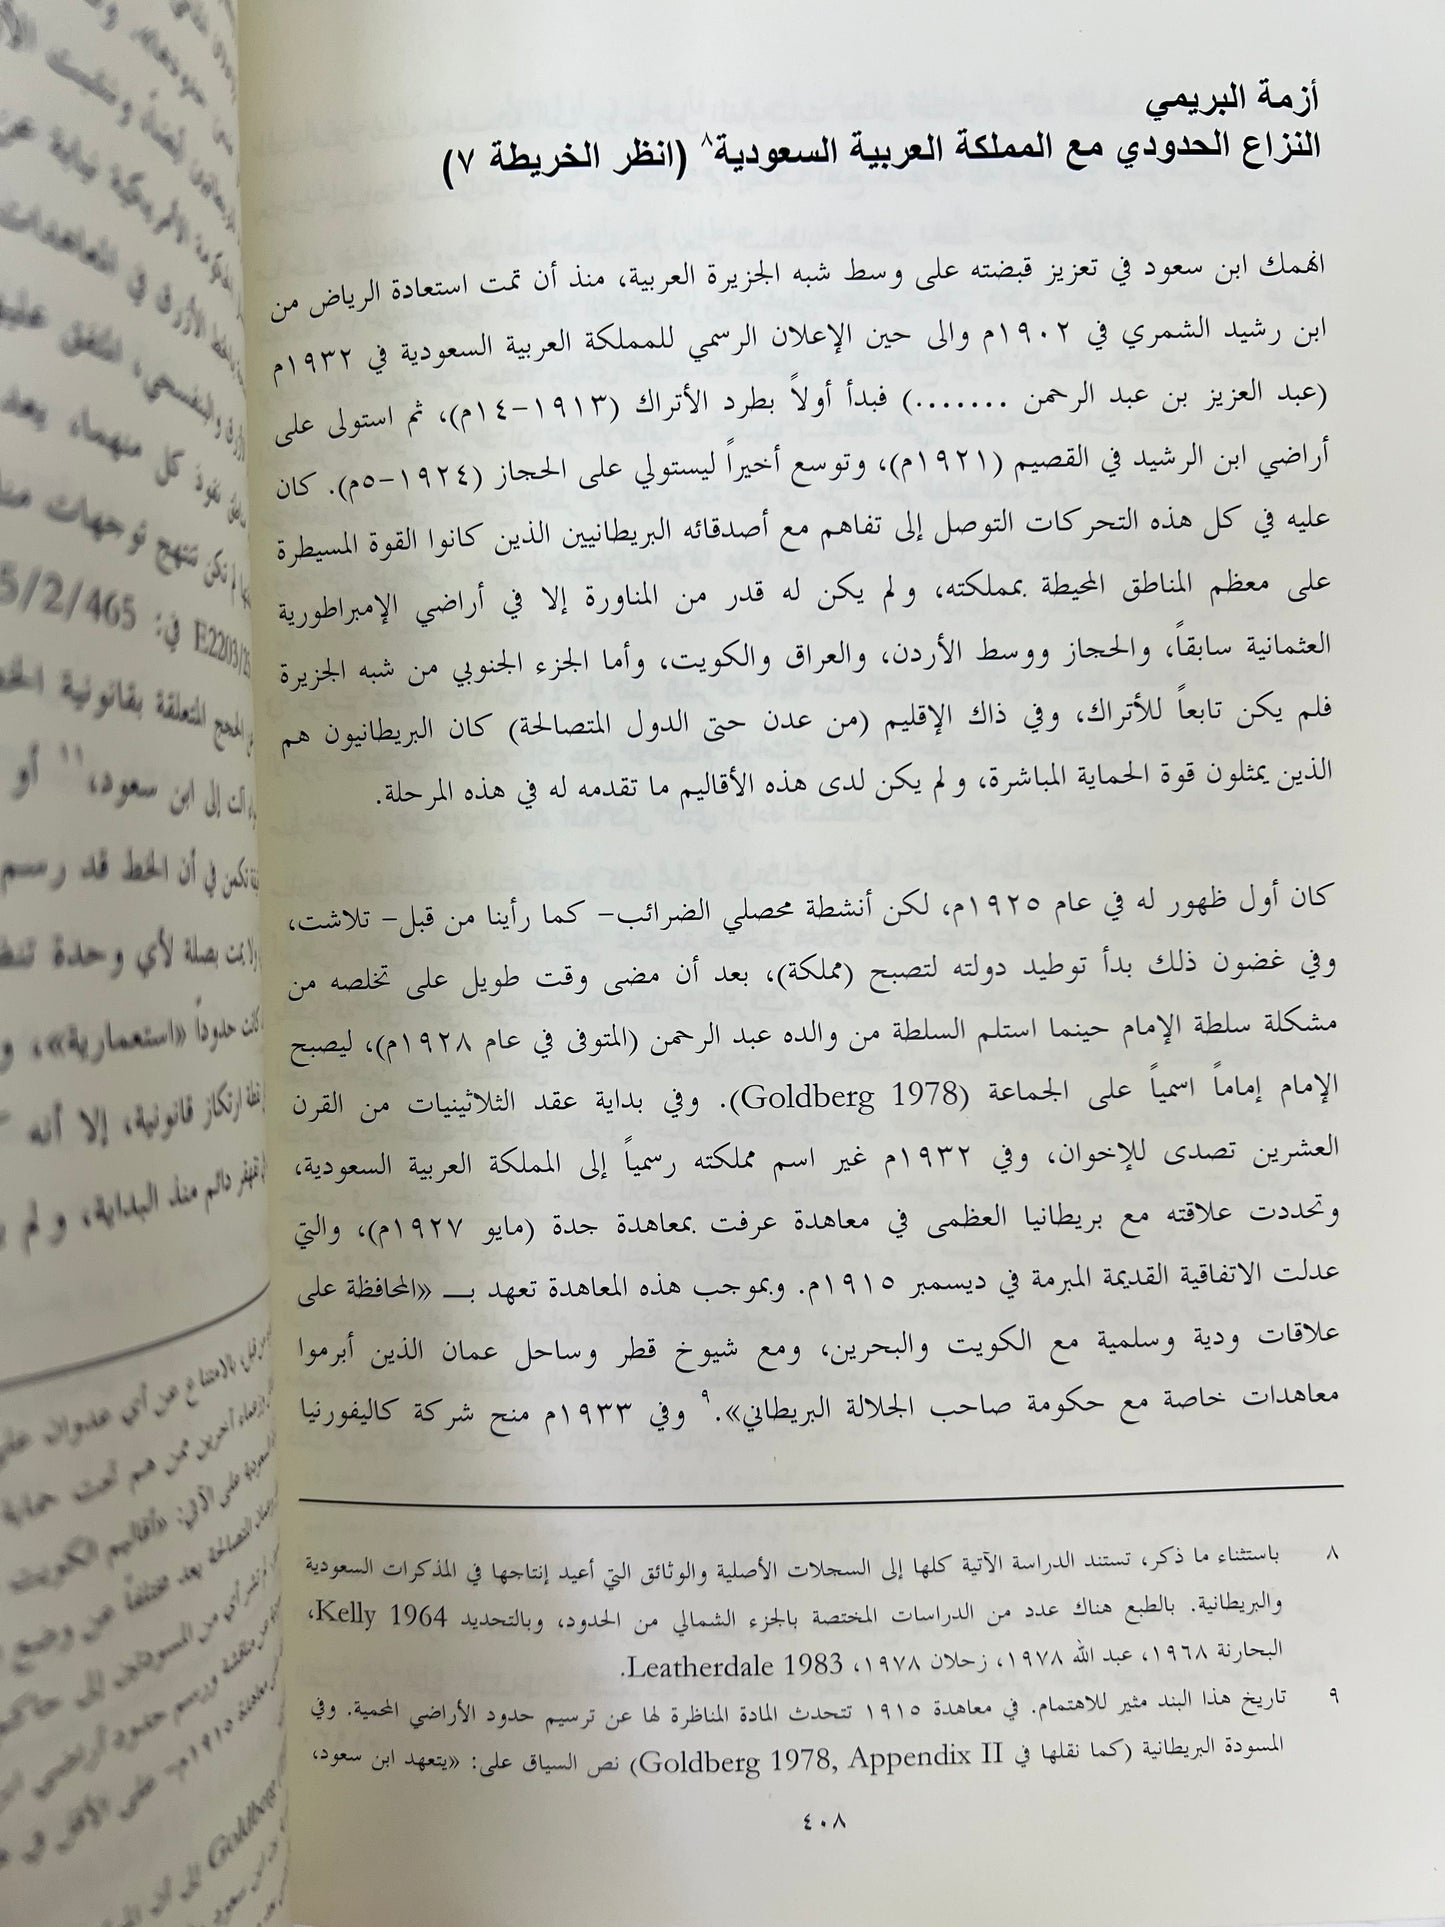 أزمة البريمي
النزاع الحدودي مع المملكة العربية السعودية٨ (انظر الخريطة ٧)
انهمك ابن سعود في تعزيز قبضته على وسط شبه الجزيرة العربية، منذ أن تمت استعادة الرياض من
ابن رشيد الشمري في ١٩٠٢م والى حين الإعلان الرسمي للمملكة العربية السعودية في ١٩٣٢م
(عبد العزيز بن عبد الرحمن .......) فبدأ أولاً بطرد الأتراك (١٩١٣-١٤م)، ثم استولى على
أراضي ابن الرشيد في القصيم (١٩٢١م)، وتوسع أخيراً ليستولي على الحجاز (١٩٢٤-٥م). كان
عليه في كل هذه التحركات التوصل إلى تفاهم مع أصدقائه البريطانيين الذين كانوا القوة المسيطرة
على معظم المناطق المحيطة بمملكته، ولم يكن له قدر من المناورة إلا في أراضي الإمبراطورية
العثمانية سابقاً، والحجاز ووسط الأردن، والعراق والكويت، وأما الجزء الجنوبي من شبه الجزيرة
فلم يكن تابعاً للأتراك، وفي ذاك الإقليم (من عدن حتى الدول المتصالحة) كان البريطانيون هم
الذين يمثلون قوة الحماية المباشرة، ولم يكن لدى هذه الأقاليم ما تقدمه له في هذه المرحلة.
كان أول ظهور له في عام ١٩٢٥م، لكن أنشطة محصلي الضرائب- كما رأينا من قبل- تلاشت،
وفي غضون ذلك بدأ توطيد دولته لتصبح (مملكة)، بعد أن مضى وقت طويل على تخلصه من
مشكلة سلطة الإمام حينما استلم السلطة من والده عبد الرحمن (المتوفى في عام ١٩٢٨م)، ليصبح
الإمام إماماً اسمياً على الجماعة (Goldberg 1978). وفي بداية عقد الثلاثينيات من القرن
العشرين تصدى للإخوان، وفي ١٩٣٢م غير اسم مملكته رسمياً إلى المملكة العربية السعودية،
وتحددت علاقته مع بريطانيا العظمى في معاهدة عرفت بمعاهدة جدة (مايو ١٩٢٧م)، والتي
عدلت الاتفاقية القديمة المبرمة في ديسمبر ١٩١٥م. وبموجب هذه المعاهدة تعهد بـــ «المحافظة على
علاقات ودية وسلمية مع الكويت والبحرين، ومع شيوخ قطر وساحل عمان الذين أبرموا
معاهدات خاصة مع حكومة صاحب الجلالة البريطاني».٩ وفي ١٩٣٣م منح شركة كاليفورنيا
٨ باستثناء ما ذكر، تستند الدراسة الآتية كلها إلى السجلات الأصلية والوثائق التي أعيد إنتاجها في المذكرات السعودية
والبريطانية. بالطبع هناك عدد من الدراسات المختصة بالجزء الشمالي من الحدود، وبالتحديد Kelly 1964،
البحارنة ١٩٦٨، عبد الله ١٩٧٨، زحلان ١٩٧٨، Leatherdale 1983.
٩ تاريخ هذا البند مثير للاهتمام. في معاهدة ١٩١٥ تتحدث المادة المناظرة لها عن ترسيم حدود الأراضي المحمية. وفي
المسودة البريطانية (كما نقلها في Goldberg 1978, Appendix II) نص السياق على: «يتعهد ابن سعود،
٤٠٨